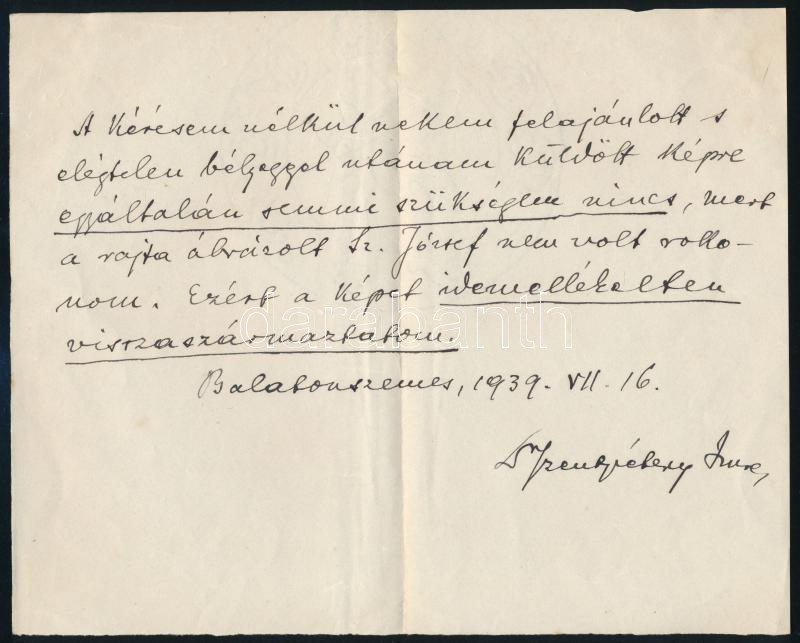 A kérésem nélkül nekem felajánlott s
elégtelen bélyeggel utánam küldött képre
egyáltalán semmi szükségem nincs, mert
a rajta ábrázolt Sz. József nem volt roko-
nom. Ezért a képet idemellékelten
visszaszármaztatom.
darabanth
Balatonszemes, 1939. VII. 16.
Dr Szentpétery Imre